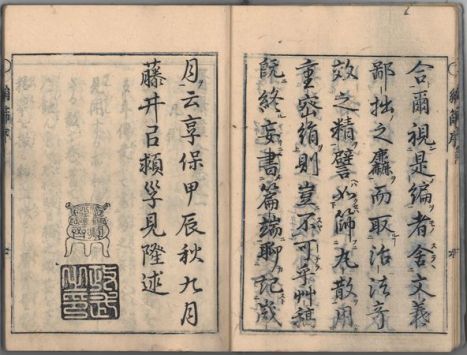 合爾視是編者舍文義
鄙拙之麤而取治法奇
效之精譬如篩丸散用
重密絹則豈不可乎艸稿
既終妄書篇端聊記歲
月云享保甲辰秋九月
藤井見隆述